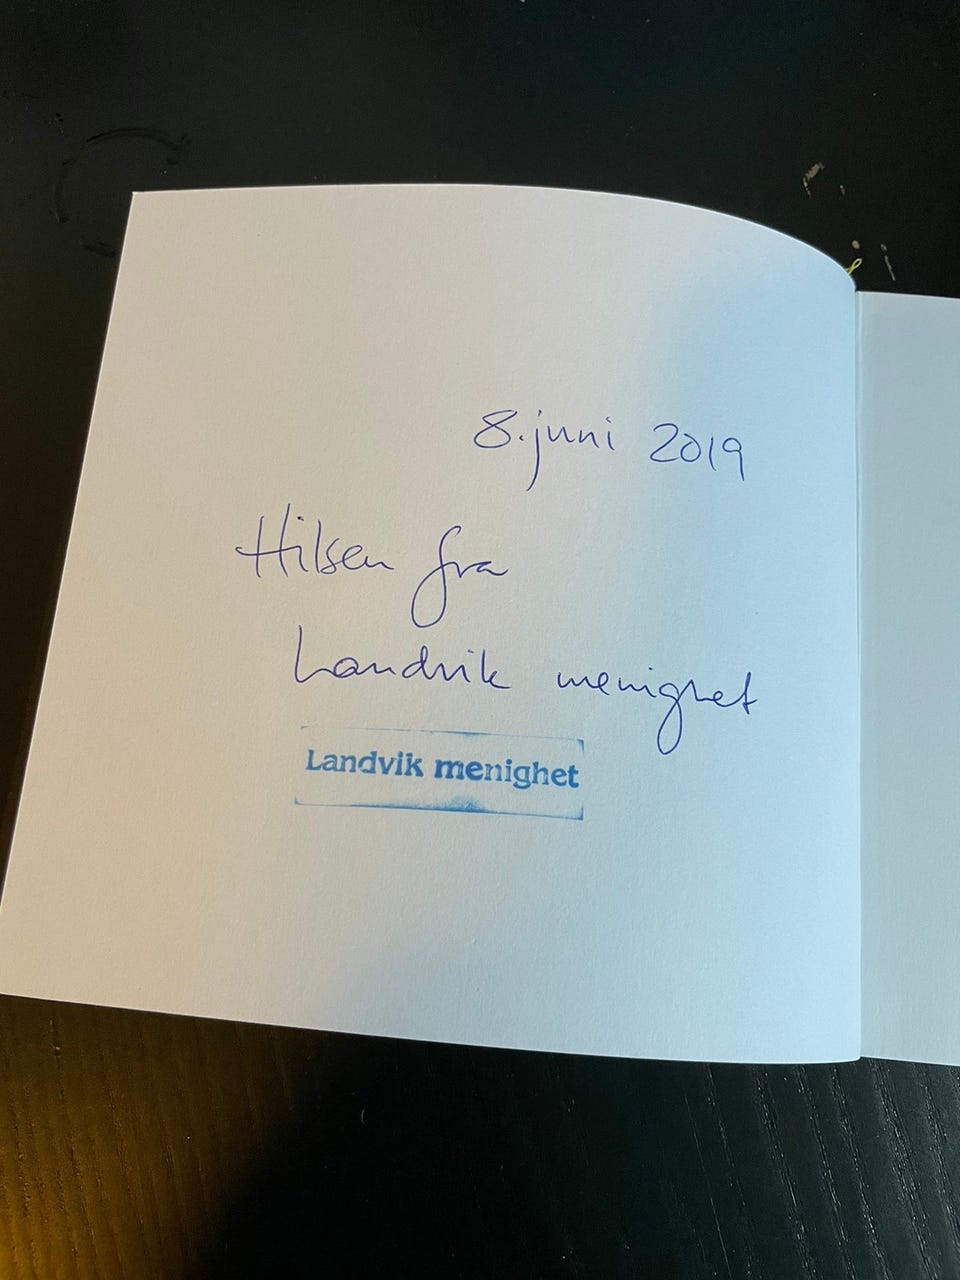 8. juni 2019
Hilsen fra
Landvik menighet
Landvik menighet